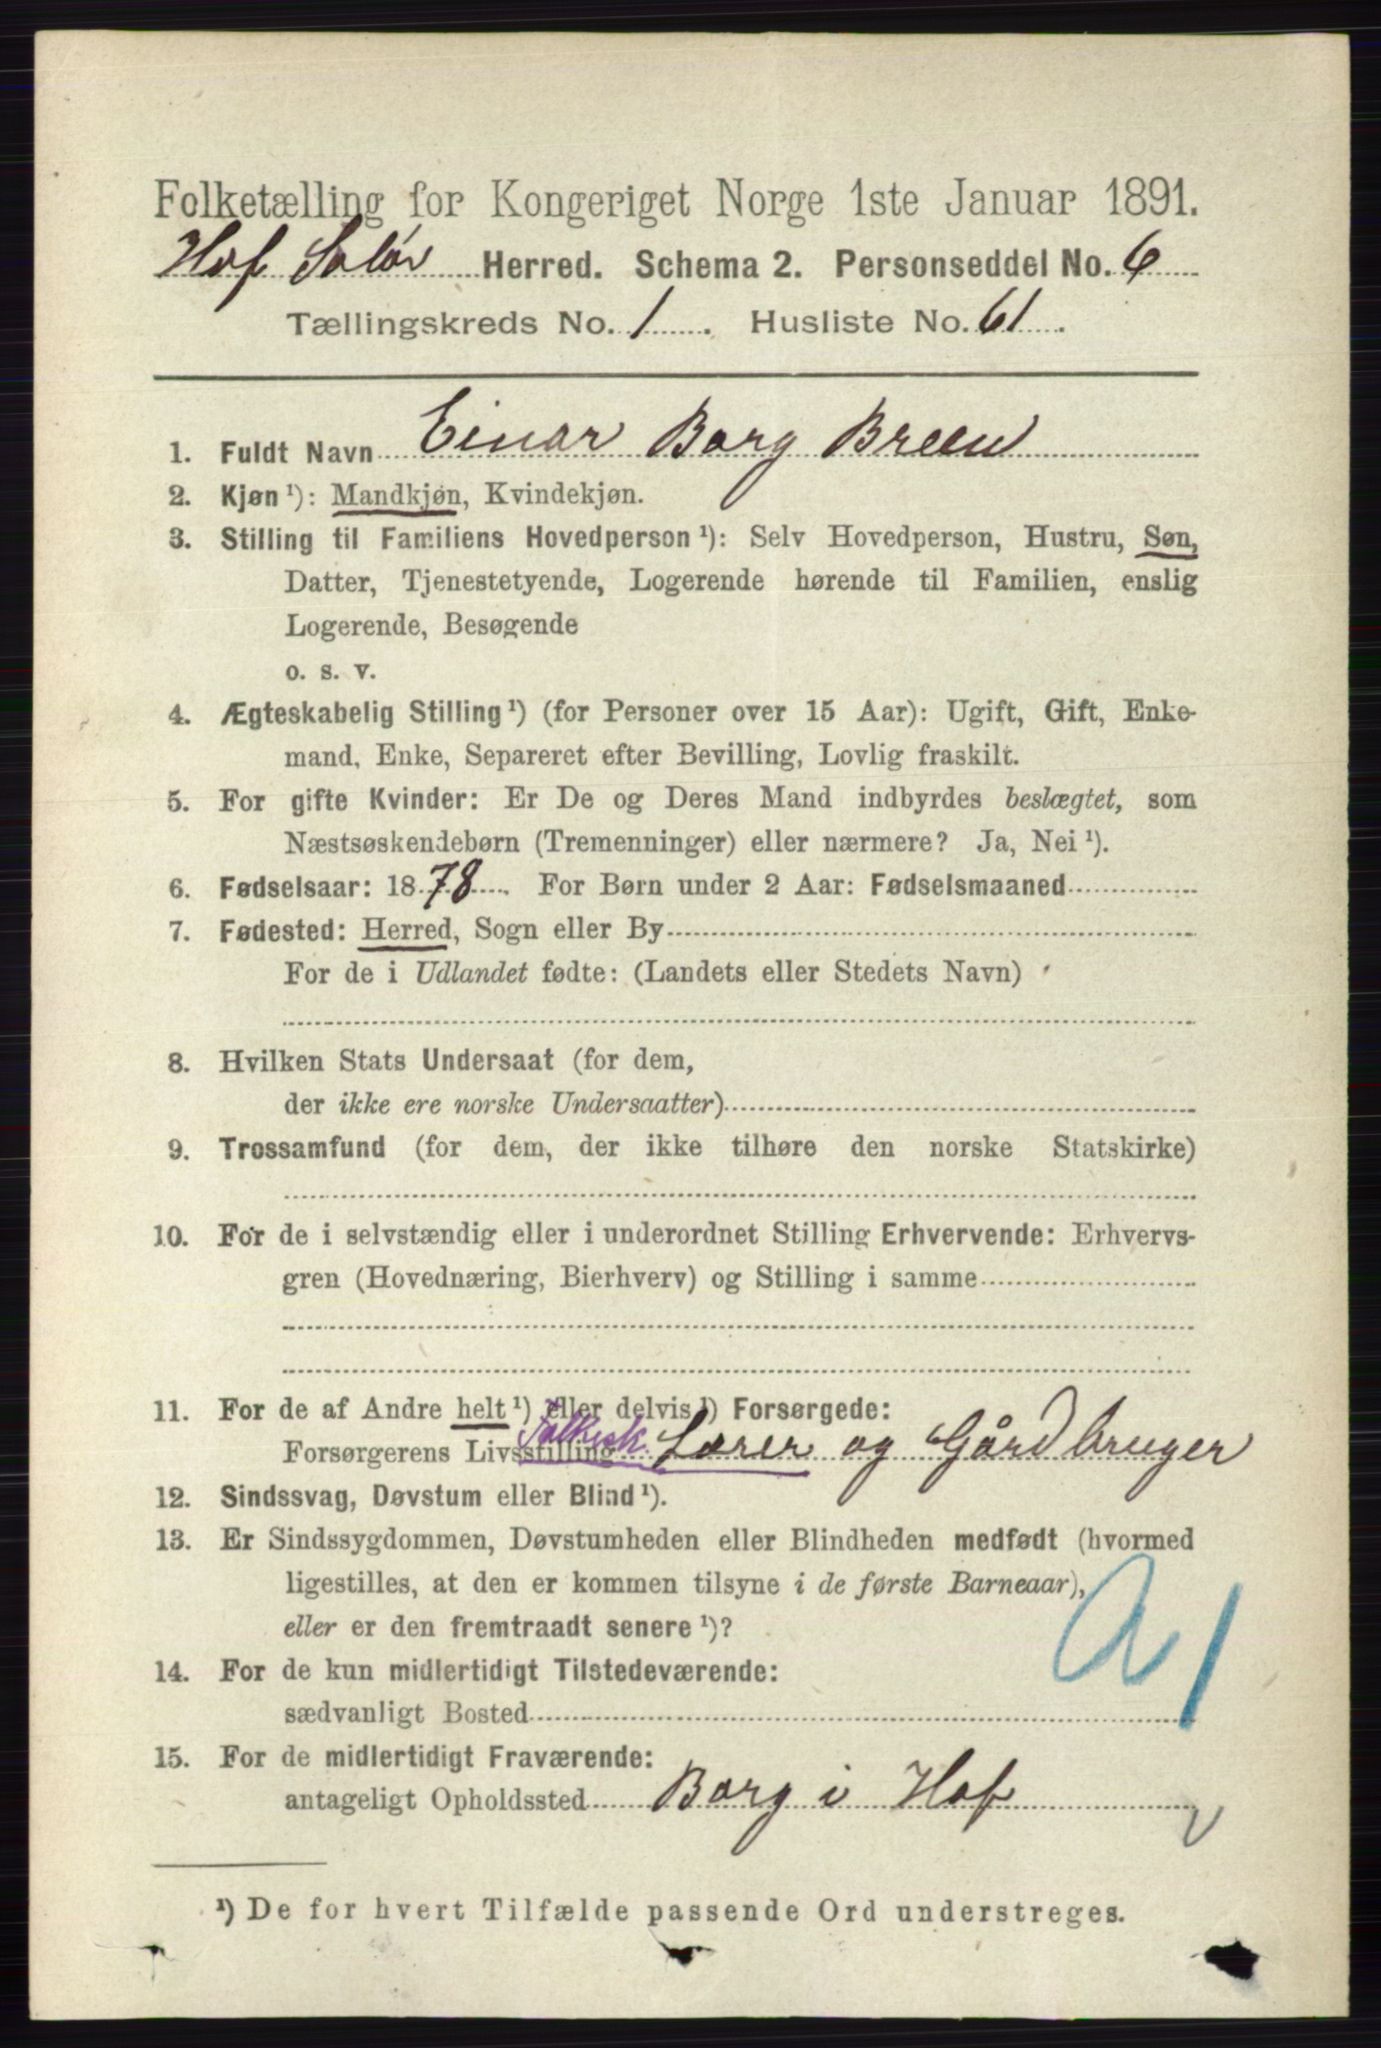 Folketælling for Kongeriget Norge 1ste Januar 1891.
Hof Solør Herred. Schema 2. Personseddel No. 6
Tællingskreds No. 1. Husliste No. 61.
1. Fuldt Navn Einar Borg Breen
2. Kjøn ¹): Mandkjøn, Kvindekjøn.
3. Stilling til Familiens Hovedperson ¹): Selv Hovedperson, Hustru, Søn,
Datter, Tjenestetyende, Logerende hørende til Familien, enslig
Logerende, Besøgende
o. s. v.
4. Ægteskabelig Stilling ¹) (for Personer over 15 Aar): Ugift, Gift, Enke-
mand, Enke, Separeret efter Bevilling, Lovlig fraskilt.
5. For gifte Kvinder: Er De og Deres Mand indbyrdes beslægtet, som
Næstsøskendebørn (Tremenninger) eller nærmere? Ja, Nei ¹).
6. Fødselsaar: 1878. For Børn under 2 Aar: Fødselsmaaned
7. Fødested: Herred, Sogn eller By
For de i Udlandet fødte: (Landets eller Stedets Navn)
8. Hvilken Stats Undersaat (for dem,
der ikke ere norske Undersaatter)
9. Trossamfund (for dem, der ikke tilhøre den norske Statskirke)
10. For de i selvstændig eller i underordnet Stilling Erhvervende: Erhvervs-
gren (Hovednæring, Bierhverv) og Stilling i samme
11. For de af Andre helt ¹) eller delvis ¹) Forsørgede:
Forsørgerens Livsstilling Folkesk. Lærer og Gårdbruger
12. Sindssvag, Døvstum eller Blind ¹).
13. Er Sindssygdommen, Døvstumheden eller Blindheden medfødt (hvormed
ligestilles, at den er kommen tilsyne i de første Barneaar),
eller er den fremtraadt senere ¹)?
a1
14. For de kun midlertidigt Tilstedeværende:
sædvanligt Bosted
15. For de midlertidigt Fraværende:
antageligt Opholdssted Borg i Hof
¹) De for hvert Tilfælde passende Ord understreges.